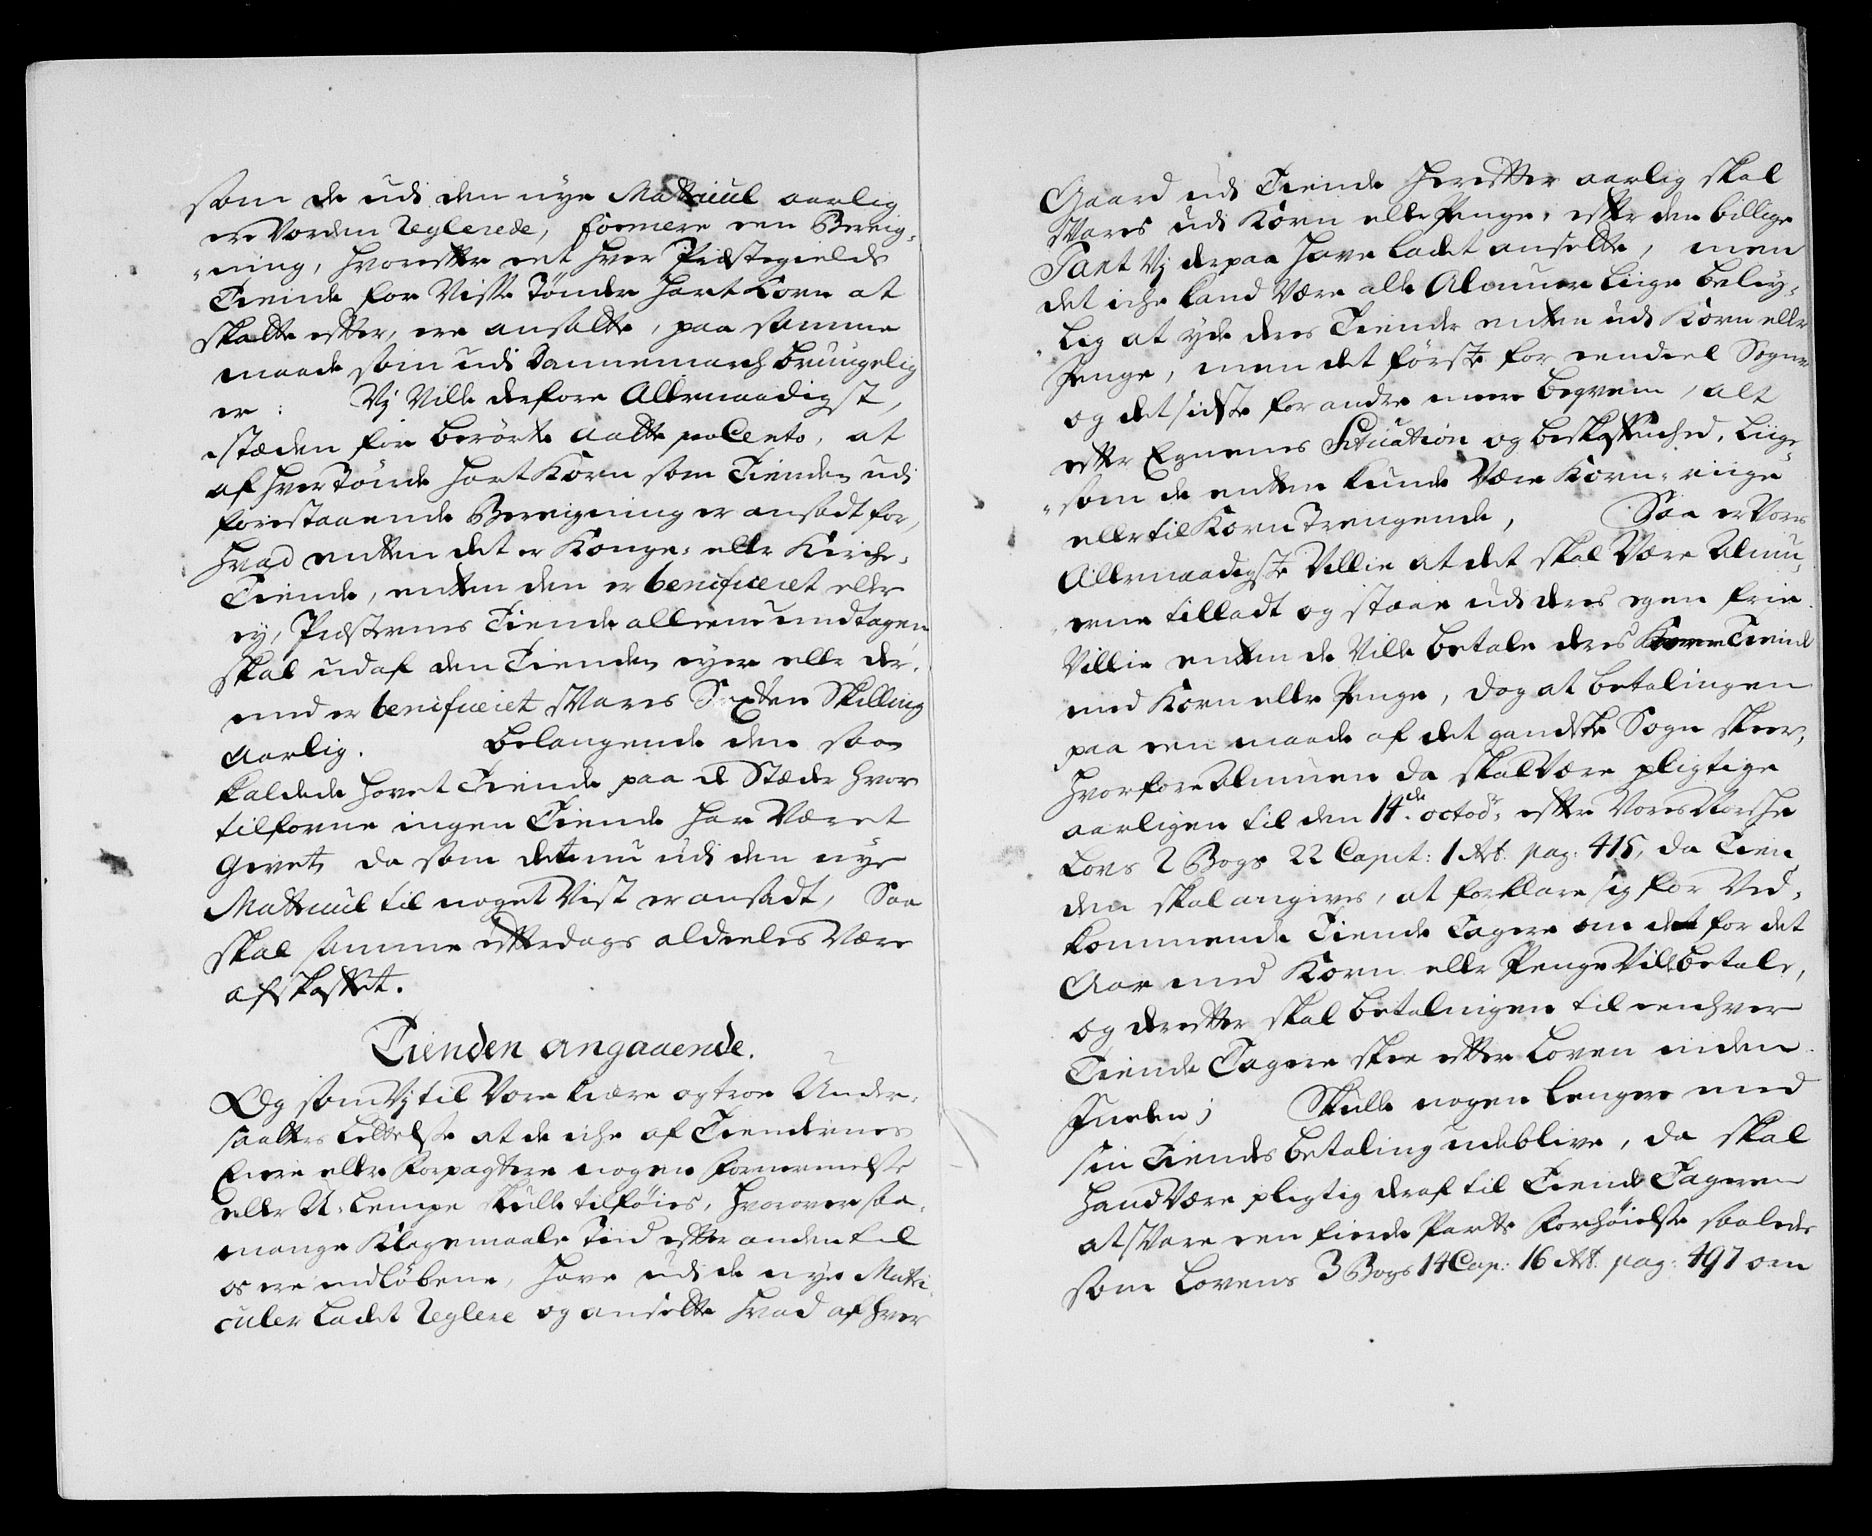 som de udi den nye Matricul aarlig
ere vorden Reglerede, formere een Bereig-
-ning, hvorefter eet hver Præstegields
Tiende for visse Tønder Hart Korn at
skatte efter, ere ansatte, paa samme
maade som udi Dannemarch brugelig
er: Vj ville derfore Allernaadigst,
i stæden for berørte Aatte pro Cento, at
af hver Tønde Hart Korn som Tienden udi
forestaaende Bereigning er ansadt for,
hvad enten det er Konge- eller Kirche-
Tiende, enten den er beneficeret eller
ey, Præsternes Tiende alleene undtagen
skal udaf den Tienden eyer eller der-
med er beneficeret svares Sexten Skilling
Aarlig. Belangende den saa
kaldede Hovet Tiende paa de Stæder hvor
tilforne ingen Tiende har været
Givet, da som det nu udi den nye
Matricul til noget vist er ansadt, Saa
skal samme efterdags aldeeles være
afskaffet.
Tienden angaaende.
Og som Vj til Vore kiære og troe Under-
saatters Lettelse at de iche af Tiendernes
Eiere eller Forpagtere nogen Fornermelse
eller U-Lempe skulle tilføies, hvorover saa
mange Klagemaale Tiid efter anden til
os ere indløbene, have udi de nye Matri-
culer ladet Reglere og ansette hvad af hver
Gaard udi Tiende herefter aarlig skal
svares udi Korn eller Penge, efter den billige
Taxt Vj derpaa have ladet ansette, men
det iche kand være alle Almuer liige beley-
-lig at yde deres Tiende enten udi Korn eller
Penge, men det første for eendeel Sogner
og det sidste for andre meere beqvem, alt
efter Egnenes Situation og beskaffenhed, liige-
-som de enten kunde være Korn-riige
eller til Korn trengende, Saa er Vores
Allernaadigste Villie at det skal være Almu-
erne tilladt og staae udi deres egen frie
Villie enten de ville betale deres Korn Tiende
med Korn eller Penge, dog at betalingen
paa een maade af det gandske Sogn skeer,
hvorfore Almuen da skal være pligtige
aarligen til den 14de octobr: efter Vores Norsche
Lovs 2 Bogs 22 Capit: 1 Art. pag: 415, da Tien-
den skal angives, at forklare sig for Ved-
kommende Tiende Tagere om det for det
Aar med Korn eller Penge ville betale,
og derefter skal betalningen til eenhver
Tiende Tagere skee efter Loven inden
Juelen; Skulle nogen lengere med
sin Tiendes betaling udeblive, da skal
hand være pligtig deraf til Tiende Tageren
at svare een fierde Parts Forhøielse saaledes
som Lovens 3 Bogs 14 Cap: 16 Art. pag: 497 om